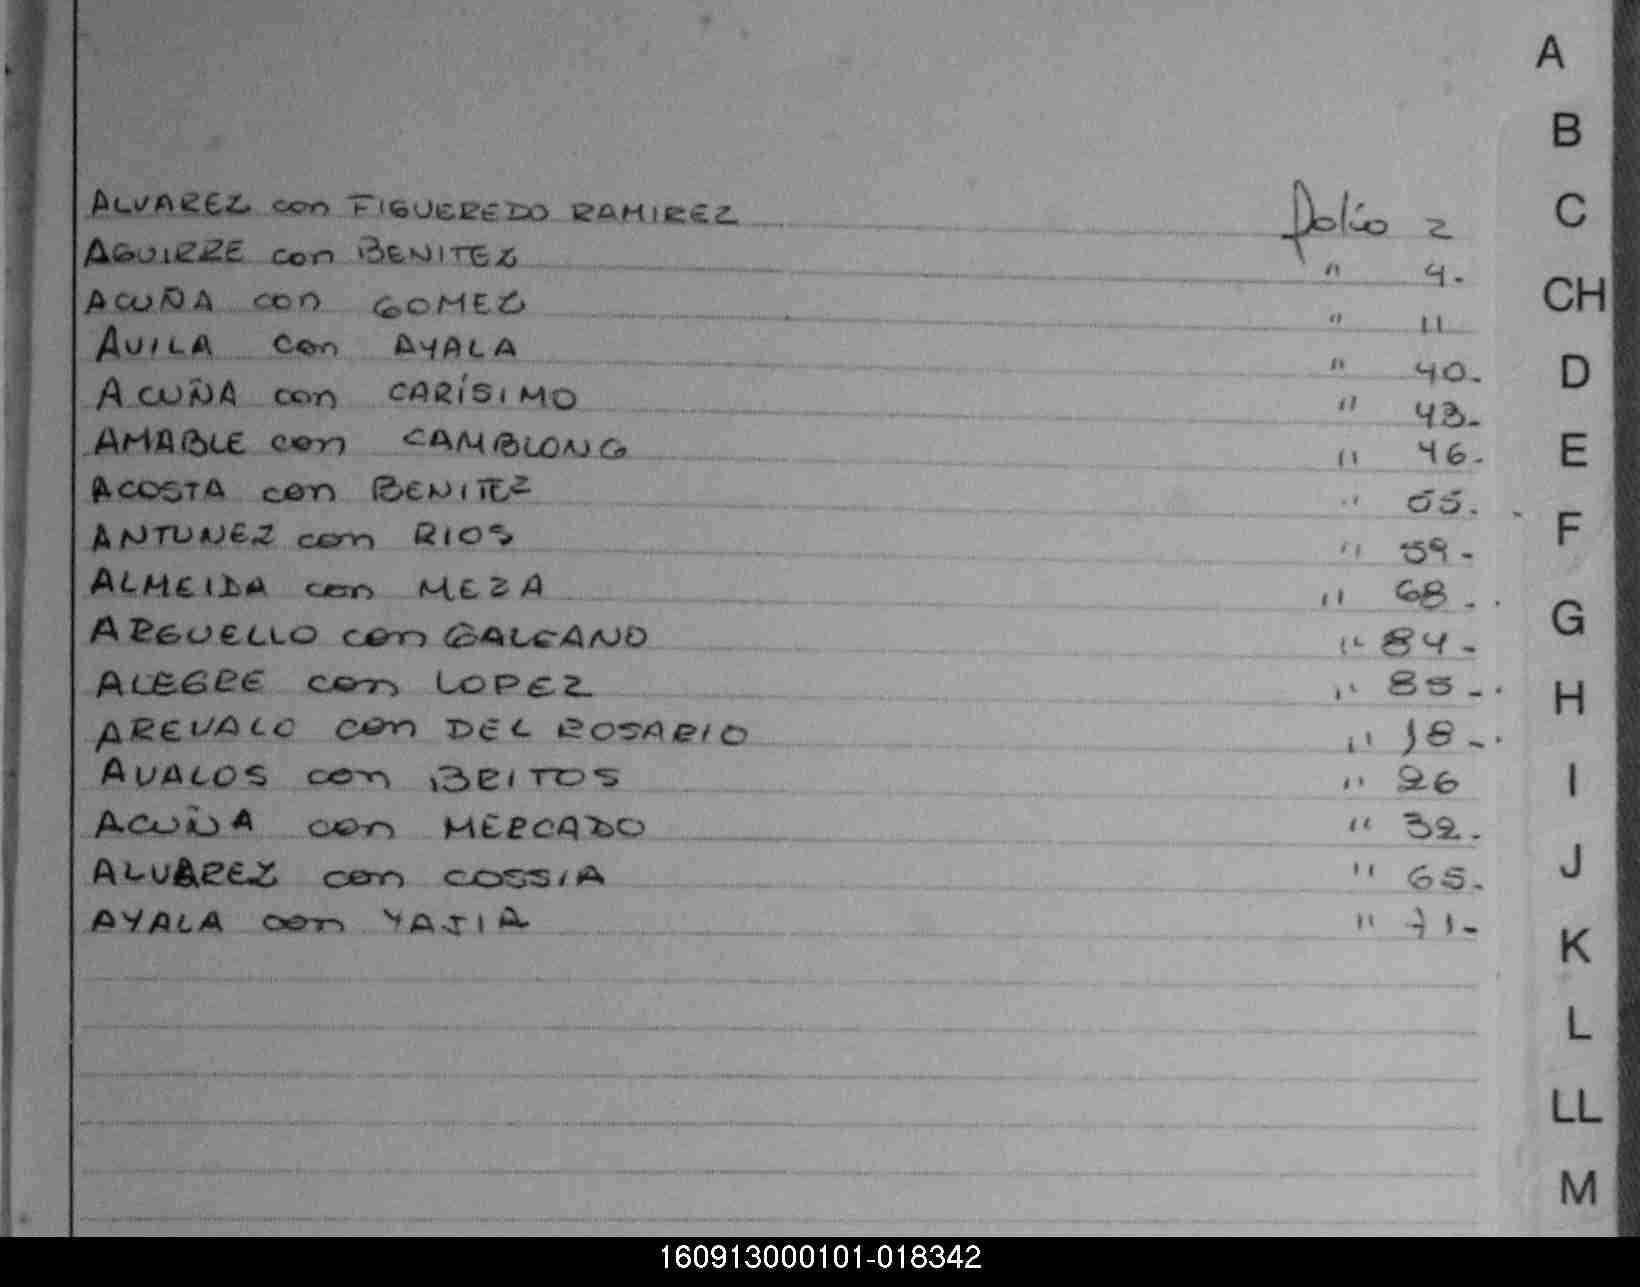 ALVAREZ con FIGUEREDO RAMIREZ folio 2
AGUIRRE con BENITEZ " 4.
ACUÑA con GOMEZ " 11
AVILA con AYALA " 40.
ACUÑA con CARÍSIMO " 43.
AMABLE con CAMBLONG " 46.
ACOSTA con BENITEZ " 55.
ANTUNEZ con RIOS " 59.
ALMEIDA con MEZA " 68.
ARGUELLO con GALEANO " 84.
ALEGRE con LOPEZ " 85.
AREVALO con DEL ROSARIO " 18.
AVALOS con BRITOS " 26
ACUÑA con MERCADO " 32.
ALVAREZ con COSSIA " 65.
AYALA con YAJIA " 71.
A
B
C
CH
D
E
F
G
H
I
J
K
L
LL
M
160913000101-018342